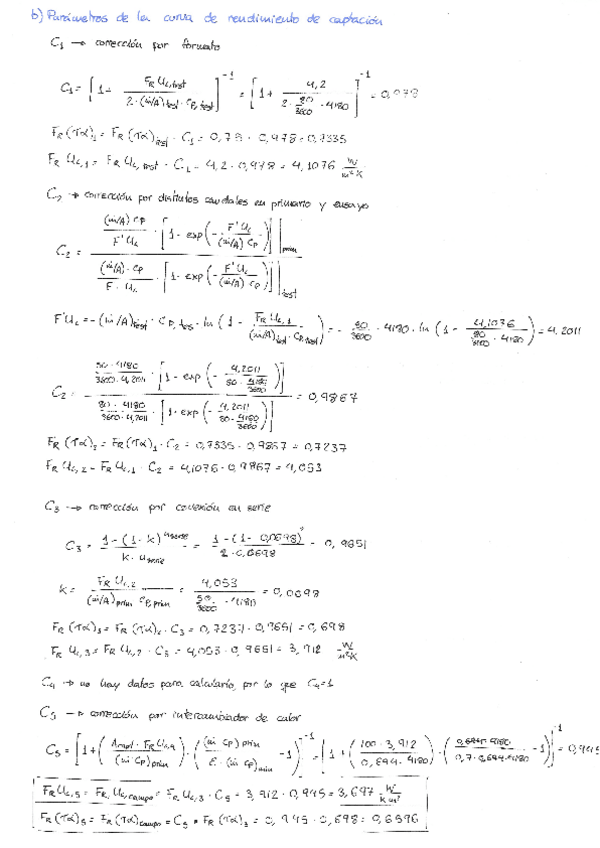 b) Parámetros de la curva de rendimiento de captación
C₁ → corrección por formato
C₁ = [1 + F_R U_{L,test} / (2·(ṁ/A)_{test}·c_{p,test})]^{-1} = [1 + 4,2 / (2·80/3600·4180)]^{-1} = 0,978
F_R(τα)₁ = F_R(τα)_{test}·C₁ = 0,75·0,978 = 0,7335
F_R U_{L,1} = F_R U_{L,test}·C₁ = 4,2·0,978 = 4,1076 W/m²K
C₂ → corrección por distintos caudales en primario y ensayo
C₂ = (ṁ/A) c_p / F' U_L · [1 - exp(-F' U_L / (ṁ/A) c_p)] |_{prim} / (ṁ/A)·c_p / F· U_L · [1 - exp(-F' U_L / (ṁ/A) c_p)] |_{test}
F'U_L = -(ṁ/A)_{test}·c_{p,tes}·ln(1 - F_R U_{L,1} / (ṁ/A)_{test}·c_{p,test}) = - 80/3600·4180·ln(1 - 4,1076 / (80/3600·4180)) = 4,2011
C₂ = 50·4180 / 3600·4,2011 · [1 - exp(- 4,2011 / (50·4180/3600))] / 80·4180 / 3600·4,2011 · [1 - exp(- 4,2011 / (80·4180/3600))] = 0,9867
F_R(τα)₂ = F_R(τα)₁·C₂ = 0,7335·0,9867 = 0,7237
F_R U_{L,2} = F_R U_{L,1}·C₂ = 4,1076·0,9867 = 4,053
C₃ → corrección por conexión en serie
C₃ = 1-(1-k)^{n serie} / k·n_{serie} = 1-(1-0,0698)² / 2·0,0698 = 0,9651
k = F_R U_{L,2} / (ṁ/A)_{prim} c_{p,prim} = 4,053 / (50/3600·4180) = 0,0698
F_R(τα)₃ = F_R(τα)₂·C₃ = 0,7237·0,9651 = 0,698
F_R U_{L,3} = F_R U_{L,2}·C₃ = 4,053·0,9651 = 3,912 W/m²K
C₄ → no hay datos para calcularlo, por lo que C₄=1
C₅ → corrección por intercambiador de calor
C₅ = [1 + (A_{capt}·F_R U_{L,4} / (ṁ c_p)_{prim})·((ṁ c_p)_{prim} / ε·(ṁ c_p)_{min} - 1)]^{-1} = [1 + (100·3,912 / 0,694·4180)·(0,694·4180 / 0,7·0,694·4180 - 1)]^{-1} = 0,945
F_R U_{L,5} = F_R U_{L,campo} = F_R U_{L,3}·C₅ = 3,912·0,945 = 3,697 W/k m²
F_R(τα)₅ = F_R(τα)_{campo} = C₅·F_R(τα)₃ = 0,945·0,698 = 0,6596